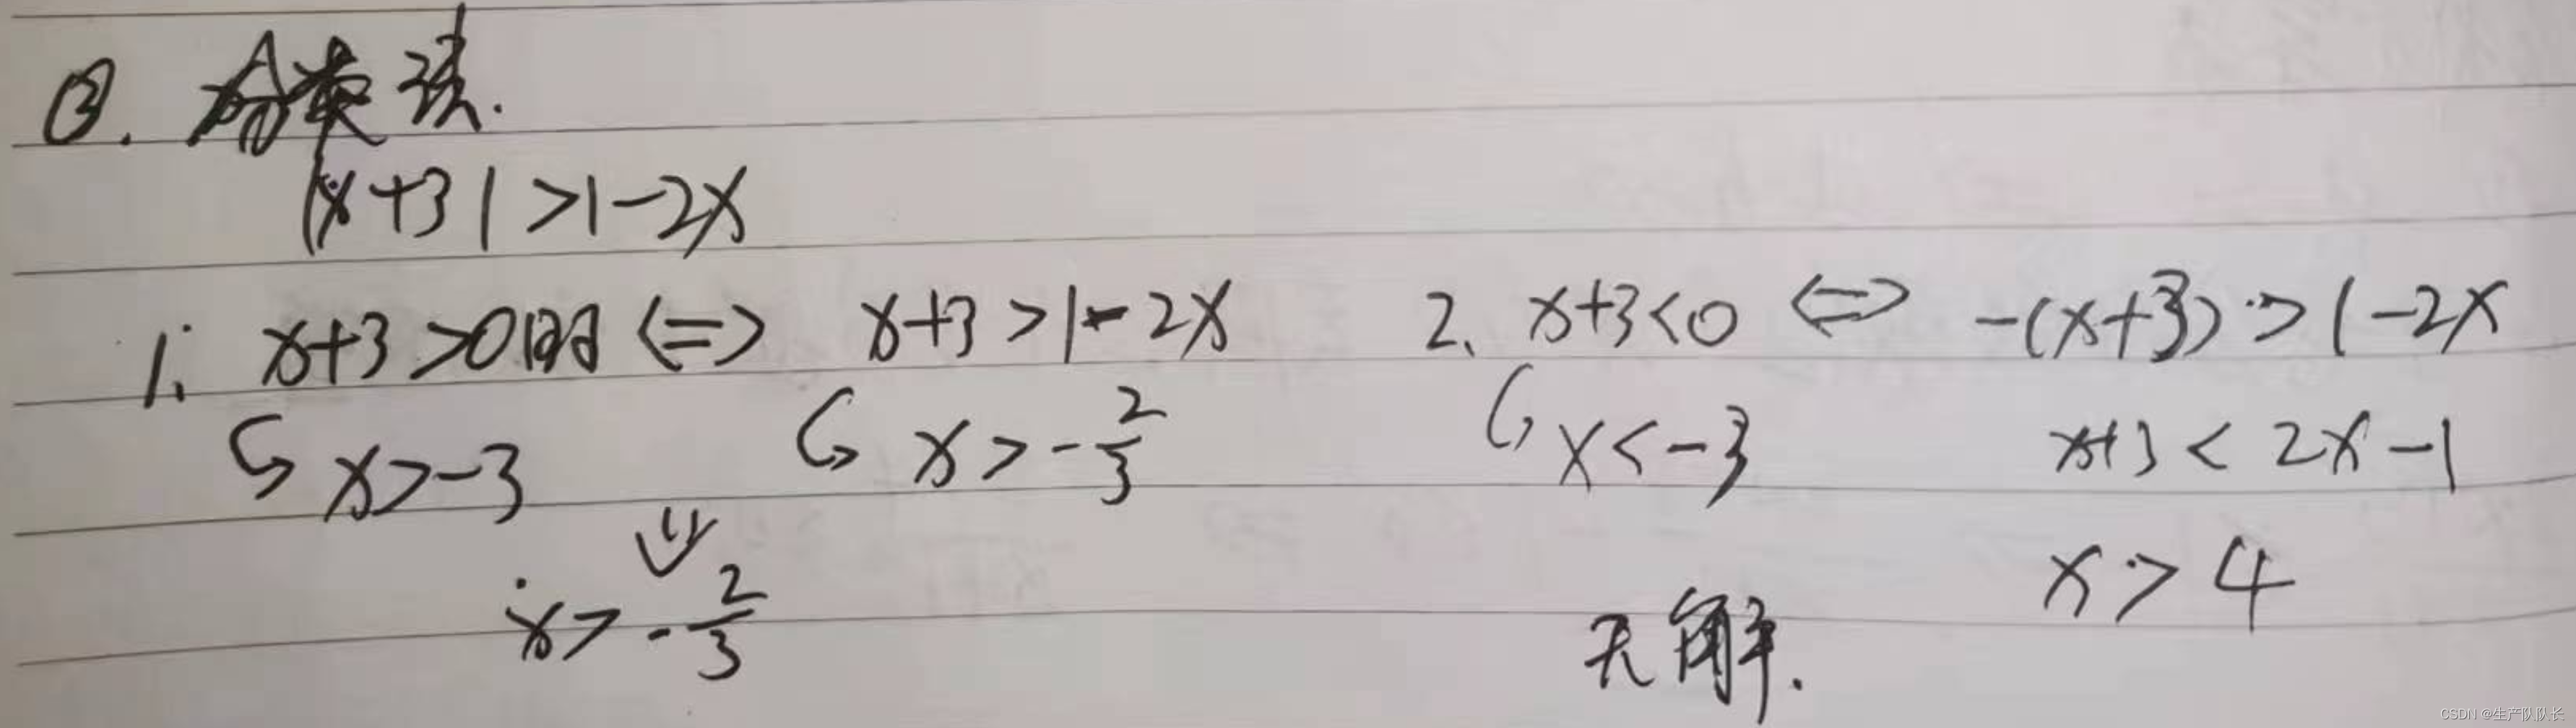 ②. 分类法.
|x+3|>1-2x
1. x+3>0时 <=> x+3>1-2x 2. x+3<0 <=> -(x+3)>1-2x
x>-3 x>-2/3 x<-3 x+3<2x-1
x>-2/3 x>4
无解.
CSDN @生产队队长